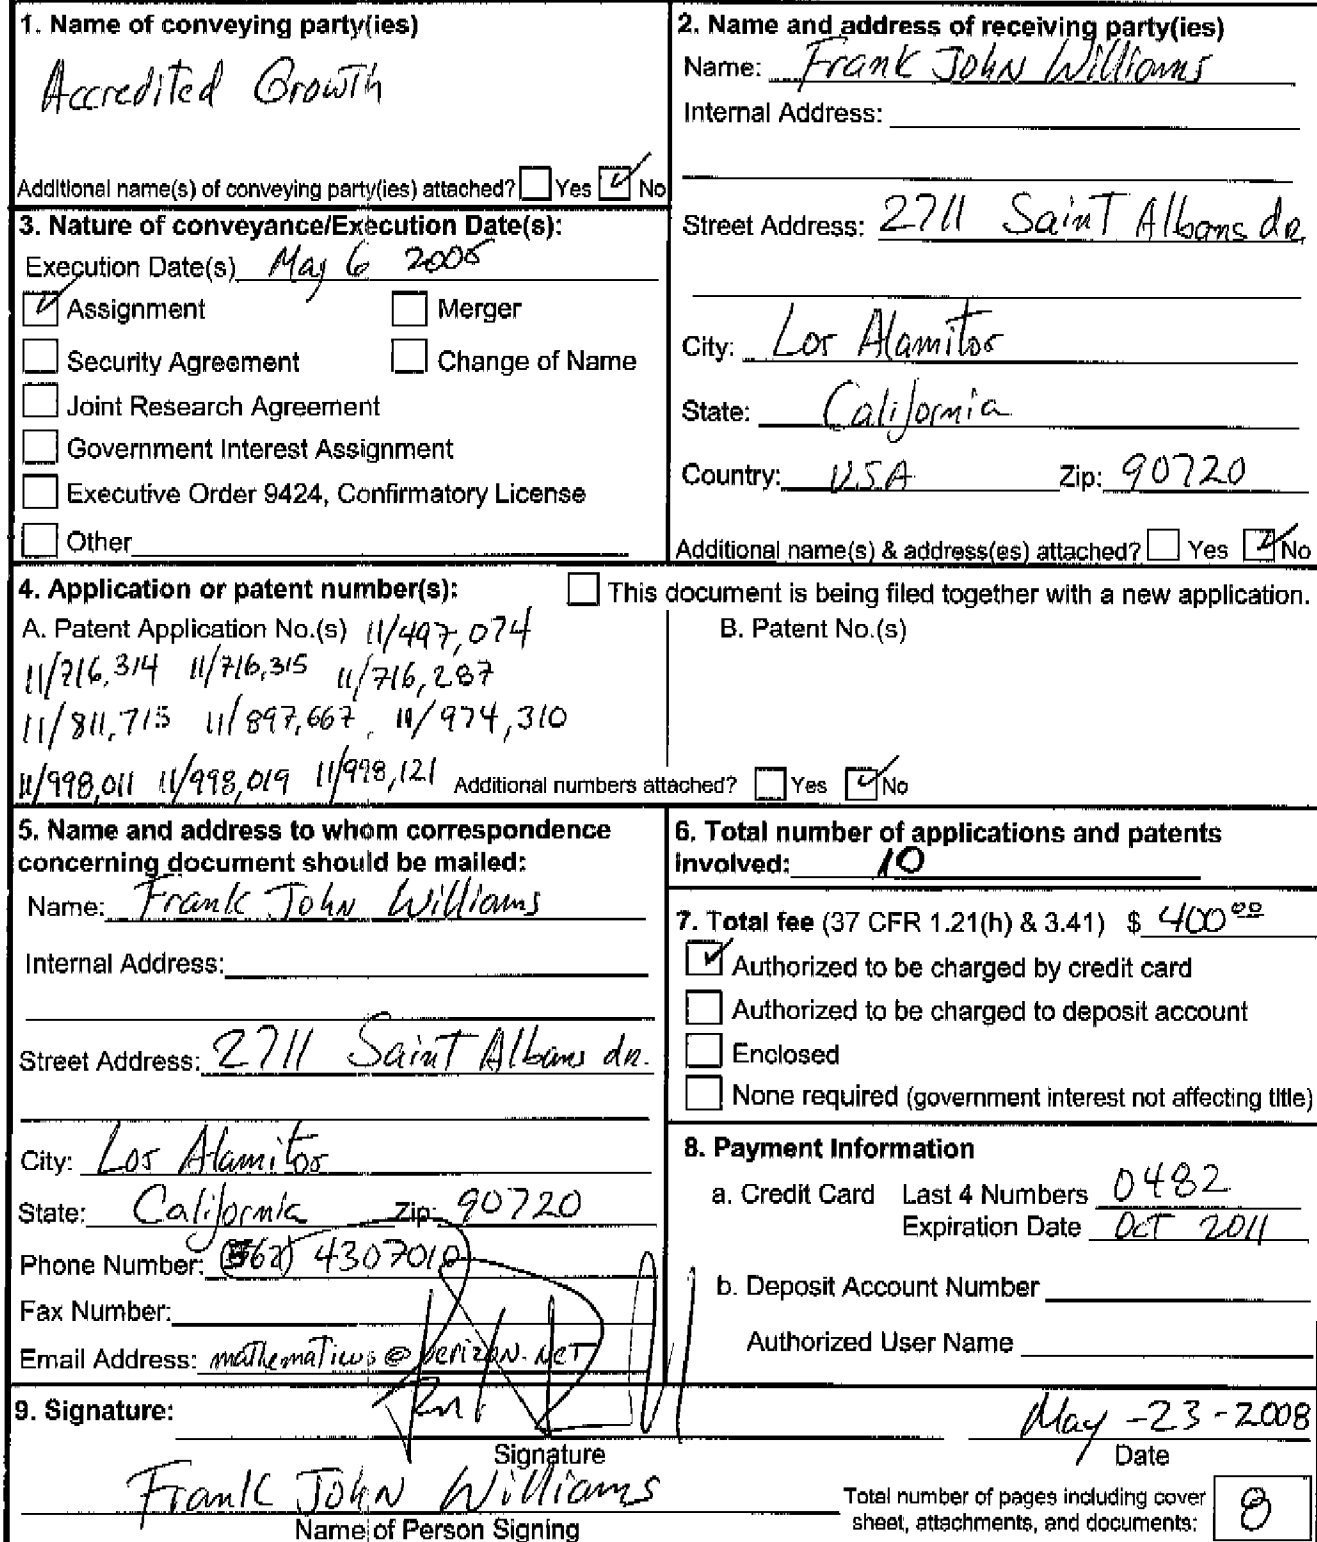 1. Name of conveying party(ies)
Accredited Growth
Additional name(s) of conveying party(ies) attached? Yes No
2. Name and address of receiving party(ies)
Name: Frank John Williams
Internal Address:
Street Address: 2711 Saint Albans dr.
City: Los Alamitos
State: California
Country: USA Zip: 90720
Additional name(s) & address(es) attached? Yes No
3. Nature of conveyance/Execution Date(s):
Execution Date(s) May 6
Assignment Merger
Security Agreement Change of Name
Joint Research Agreement
Government Interest Assignment
Executive Order 9424, Confirmatory License
Other
4. Application or patent number(s): This document is being filed together with a new application.
A. Patent Application No.(s) 11/497,074 B. Patent No.(s)
11/716,314 11/716,315 11/716,287
11/811,715 11/897,667, 11/974,310
11/998,011 11/998,019 11/998,121 Additional numbers attached? Yes No
5. Name and address to whom correspondence
concerning document should be mailed:
Name: Frank John Williams
Internal Address:
Street Address: 2711 Saint Albans dr.
City: Los Alamitos
State: California Zip: 90720
Phone Number: (562) 4307010
Fax Number:
Email Address: mathematicus@verizon.net
6. Total number of applications and patents
involved: 10
7. Total fee (37 CFR 1.21(h) & 3.41) $ 400 00
Authorized to be charged by credit card
Authorized to be charged to deposit account
Enclosed
None required (government interest not affecting title)
8. Payment Information
a. Credit Card Last 4 Numbers 0482
Expiration Date OCT 2011
b. Deposit Account Number
Authorized User Name
9. Signature:
May-23-2008
Signature Date
Frank John Williams
Name of Person Signing
Total number of pages including cover
sheet, attachments, and documents: 8